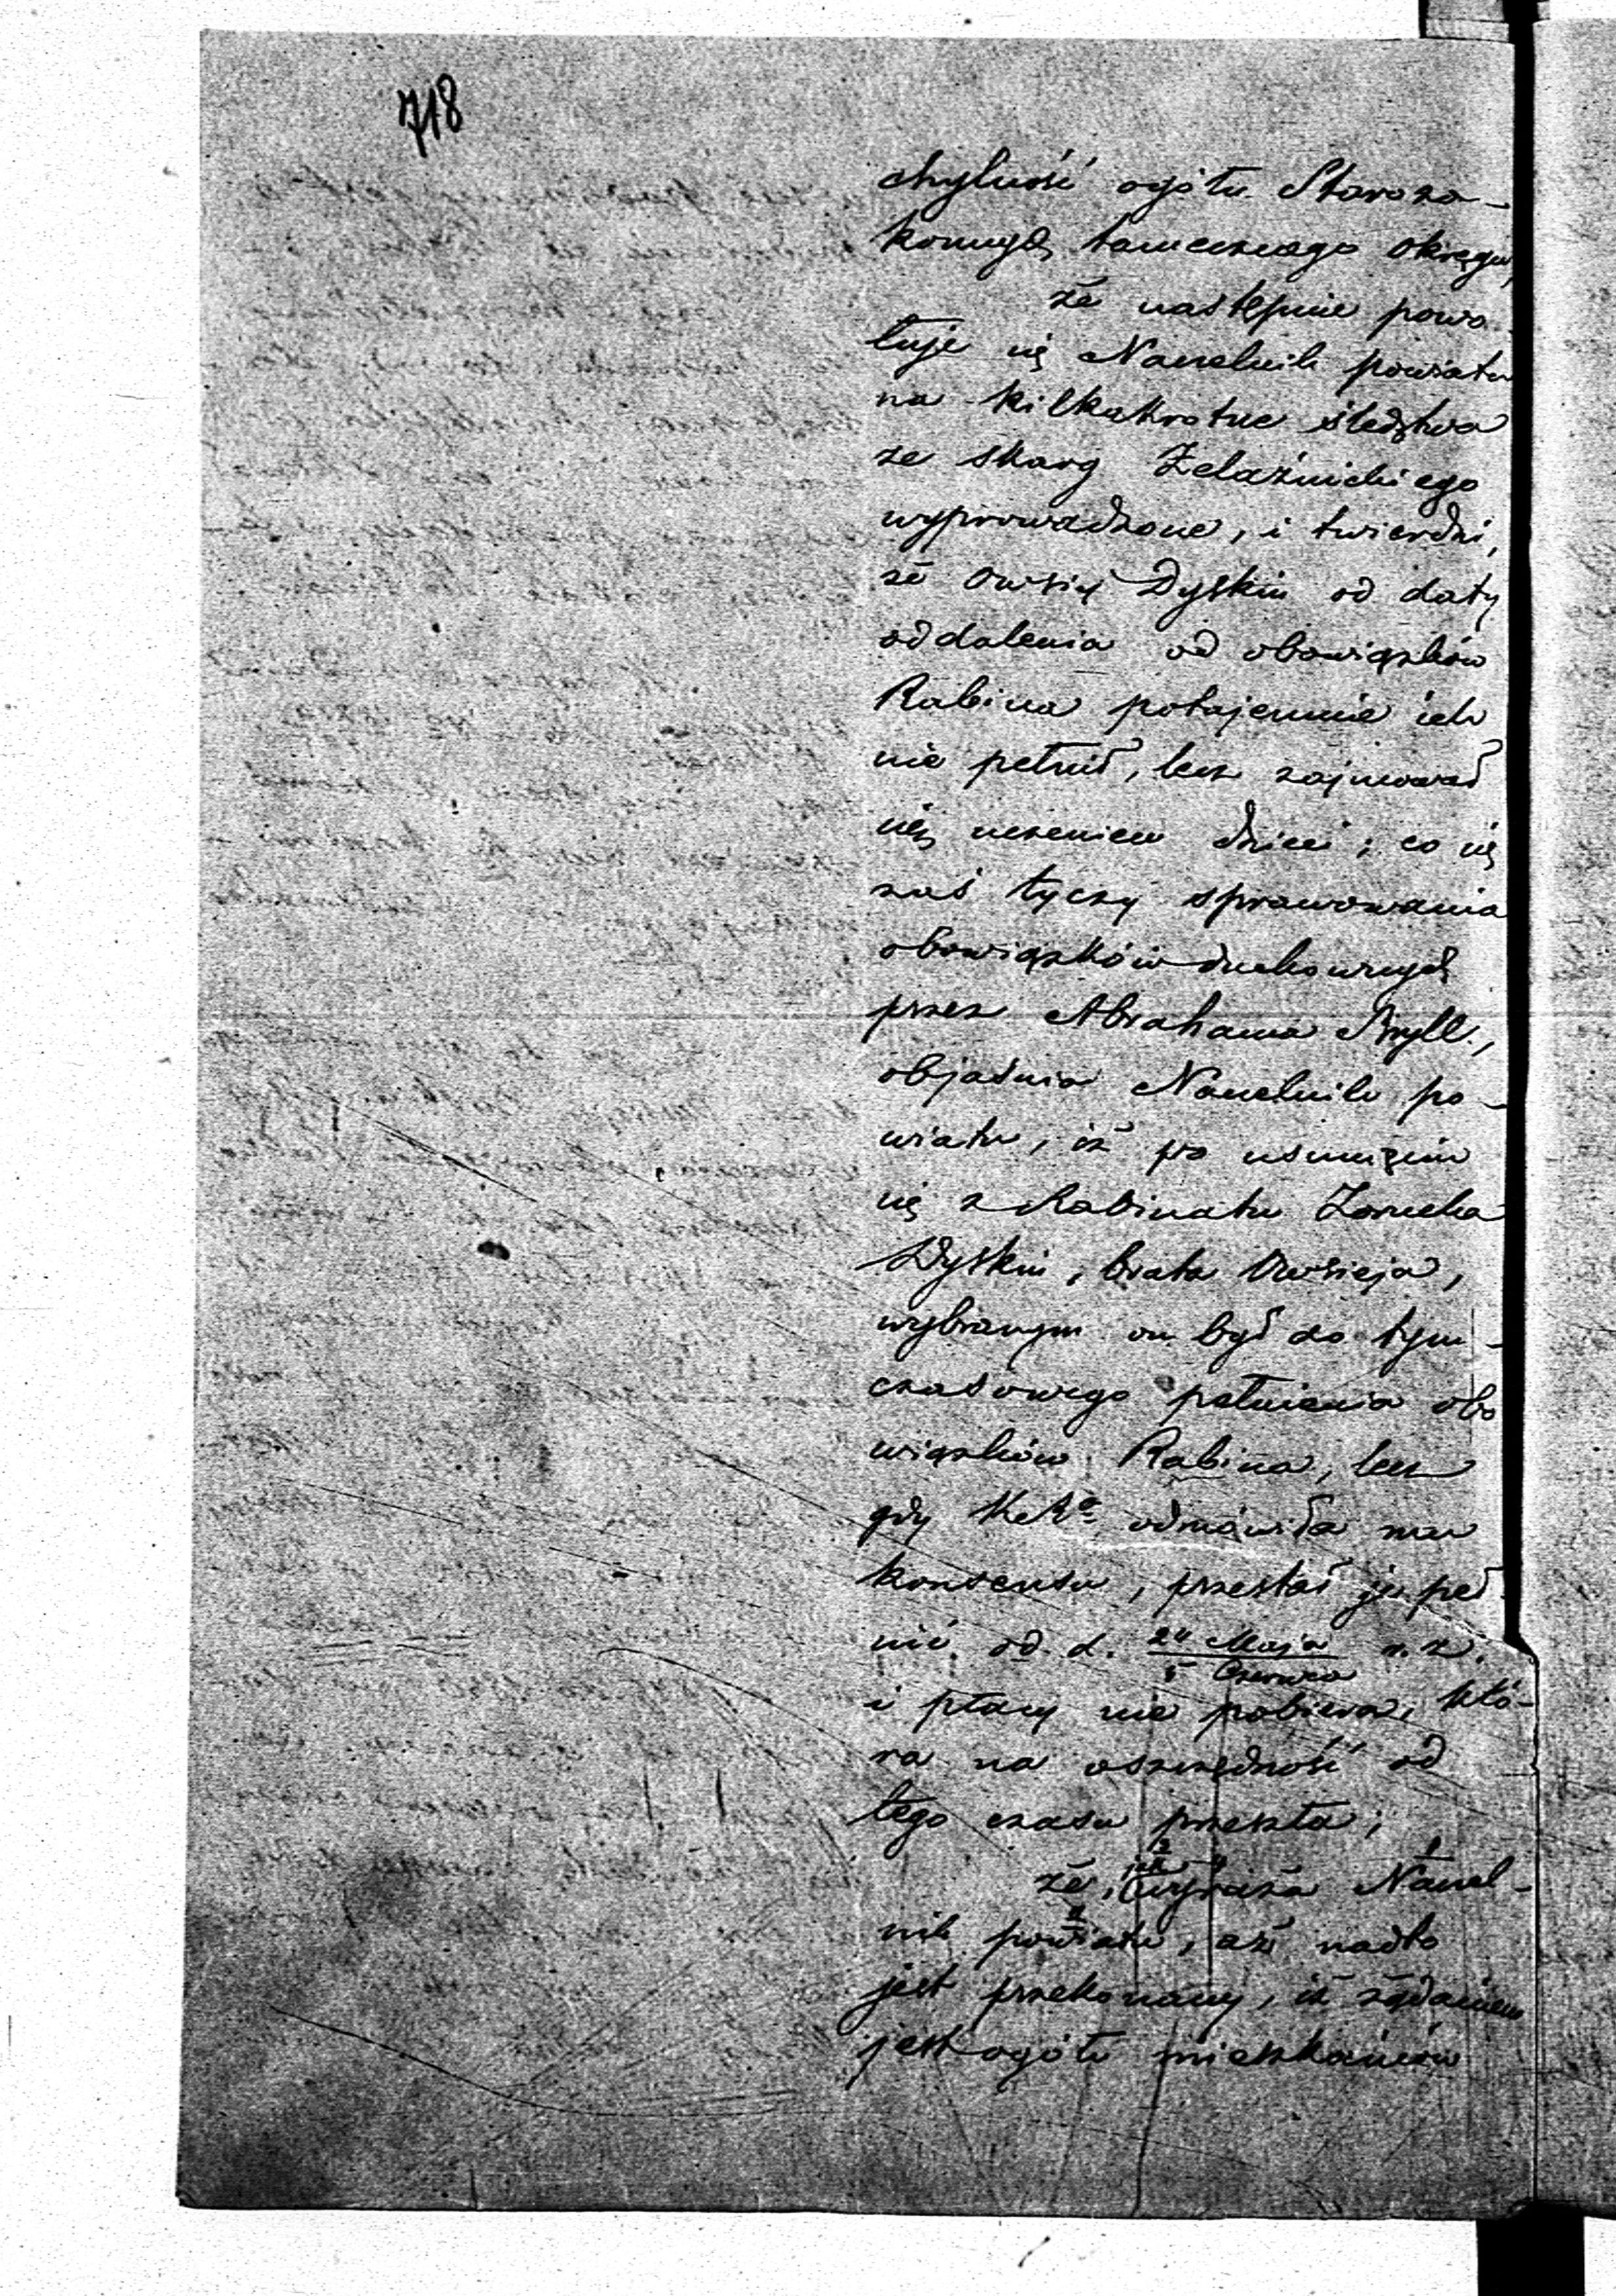 718
chylność ogółu Staroza-
konnych tamecznego Okręgu,
że następnie powo-
łuje się Naczelnik powiatu
na kilkakrotne śledztwa
ze skarg Żelaźnickiego
wyprowadzone, i twierdzi,
że Owsiej Dyskin od daty
oddalenia od obowiązków
Rabina potajemnie ich
nie pełnił, lecz zajmował
się uczeniem dzieci; co się
zaś tyczy sprawowania
obowiązków duchownych
przez Abrahama Bryll,
objaśnia Naczelnik po-
wiatu, iż po usunięciu
się z Rabinatu
Dyskin, brata Owsieja,
wybranym on był do tym-
czasowego pełnienia obo
wiązków Rabina, lecz
gdy odmówiła mu
konsensu, przestał je peł-
nić od d. 24 Maja / 5 Czerwca r. z.
i płacy nie pobiera, któ-
ra na oszczędność od
tego czasu przeszła;
że, jak wyraża Naczel-
nik powiatu, aż nadto
jest przekonany, iż żądaniem
jest ogółu mieszkańców